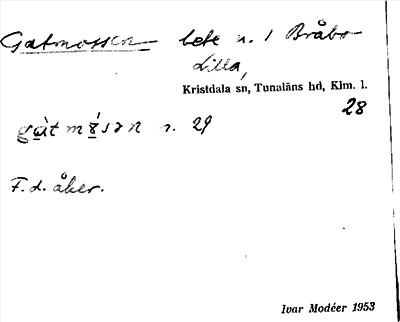 Gatmossen bete n. 1 Bråbo
Lilla,
Kristdala sn, Tunaläns hd, Klm. l.
28
gàt mósən r. 29
F. d. åker.
Ivar Modéer 1953